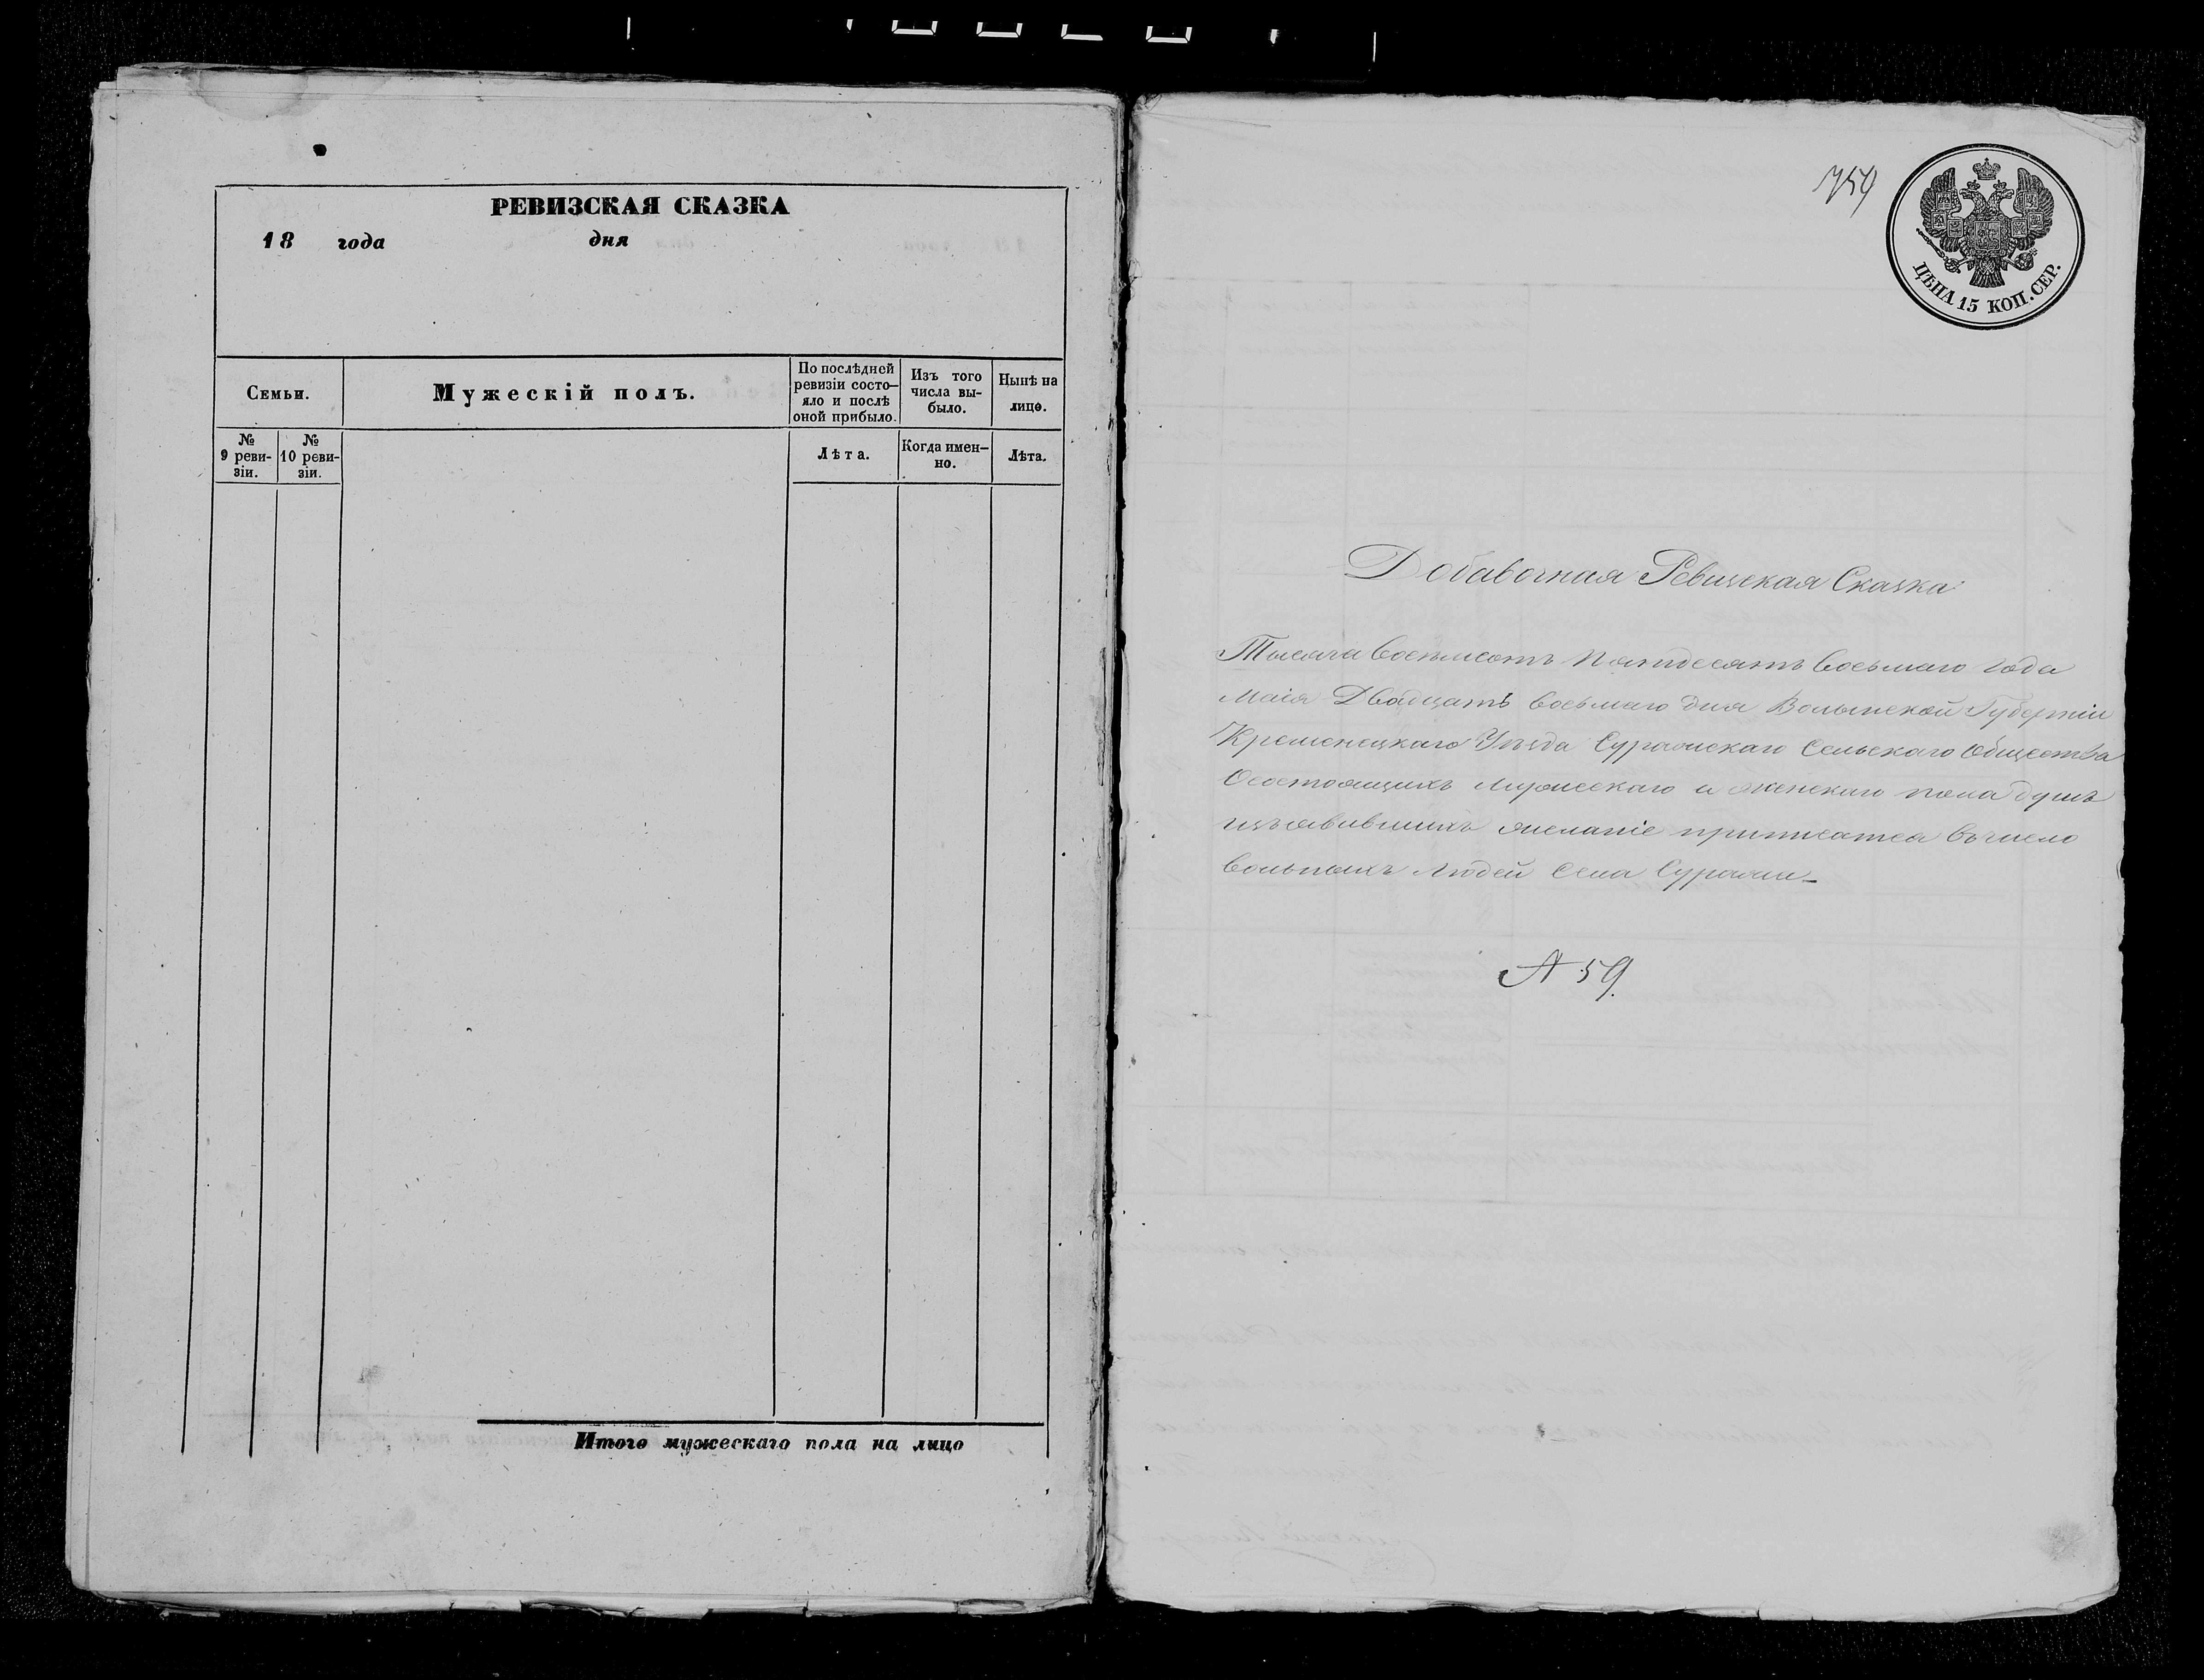 РЕВИЗСКАЯ СКАЗКА
18 года дня
Семьи.
Мужескій полъ.
По послѣдней
ревизіи состо-
яло и послѣ
оной прибыло.
Изъ того
числа вы-
было.
Нынѣ на
лицо.
№
9 реви-
зіи.
№
10 реви-
зіи.
Лѣта.
Когда имен-
но.
Лѣта.
Итого мужескаго пола на лицо
754
ЦѢНА 15 КОП. СЕР.
Добавочная Ревизская Сказка
Тысяча восемьсотъ пятдесятъ восьмаго года
Маія Двадцать восьмаго дня Волынской Губерніи
Кременецкаго Уѣзда Суражскаго Сельскаго Общества
О состоящихъ мужескаго и женскаго пола душъ
изъявившихъ желаніе приписатся въ число
вольныхъ людей села Суража
№ 59.